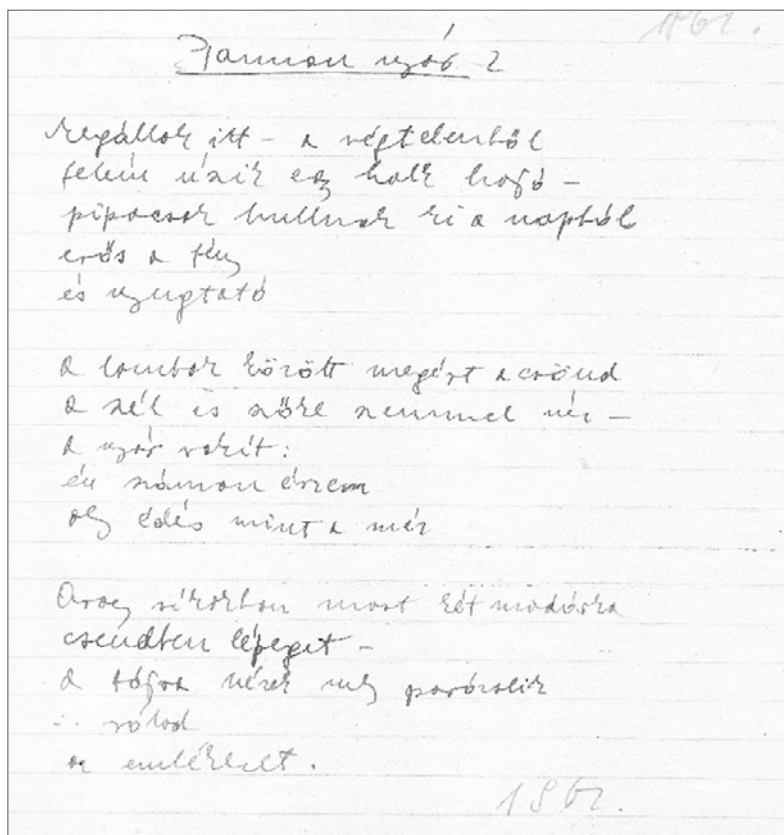 1962.
Pannon nyár 2
Megállok itt – a végtelenből
felém úszik egy halk hajó –
pipacsok hullnak ki a napból
erős a fény
és nyugtató
a lombok között megért a csönd
a szél is szőke szemmel néz –
a nyár vakít:
én számon érzem
oly édes mint a méz
Arany síkokban most két madárka
csendben lépeget –
a tájra nézek míg parázslik
rólad
az emlékezet.
1962.